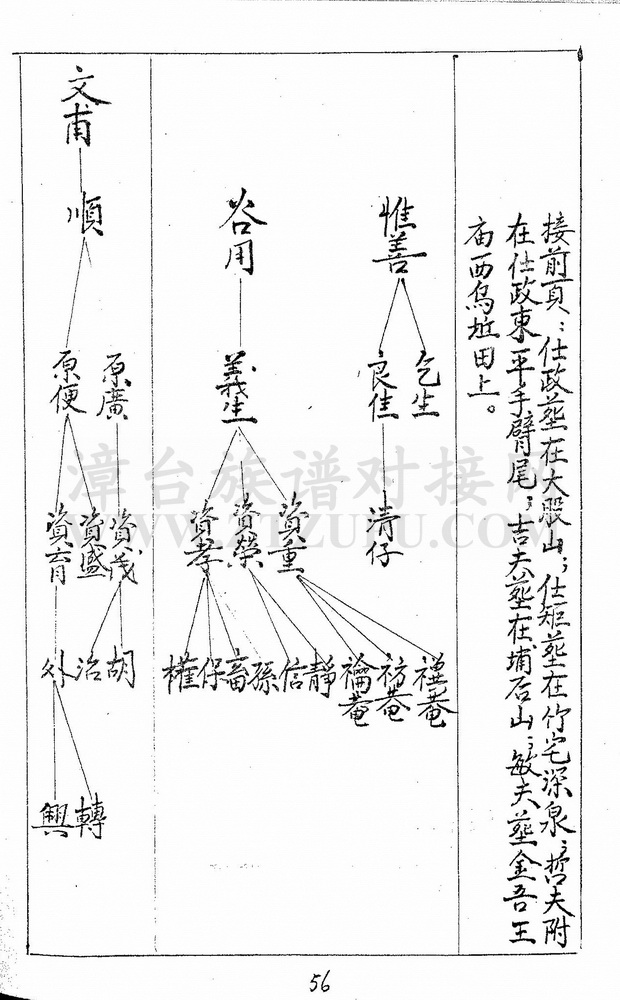 接前頁：仕政塟在大股山；仕矩塟在竹宅深泉；哲夫附
在仕政東平手臂尾；吉夫塟在埔后山；敏夫塟金吾王
庙西乌坵田上。
惟善
乞生
良佳
清仔
谷用
義生
資重
資榮
資孝
禮菴
祊菴
禴菴
靜
信
孫
畜
保
權
文甫
順
原廣
原便
資茂
資盛
資育
胡
治
外
轉
興
漳台族谱对接网
56